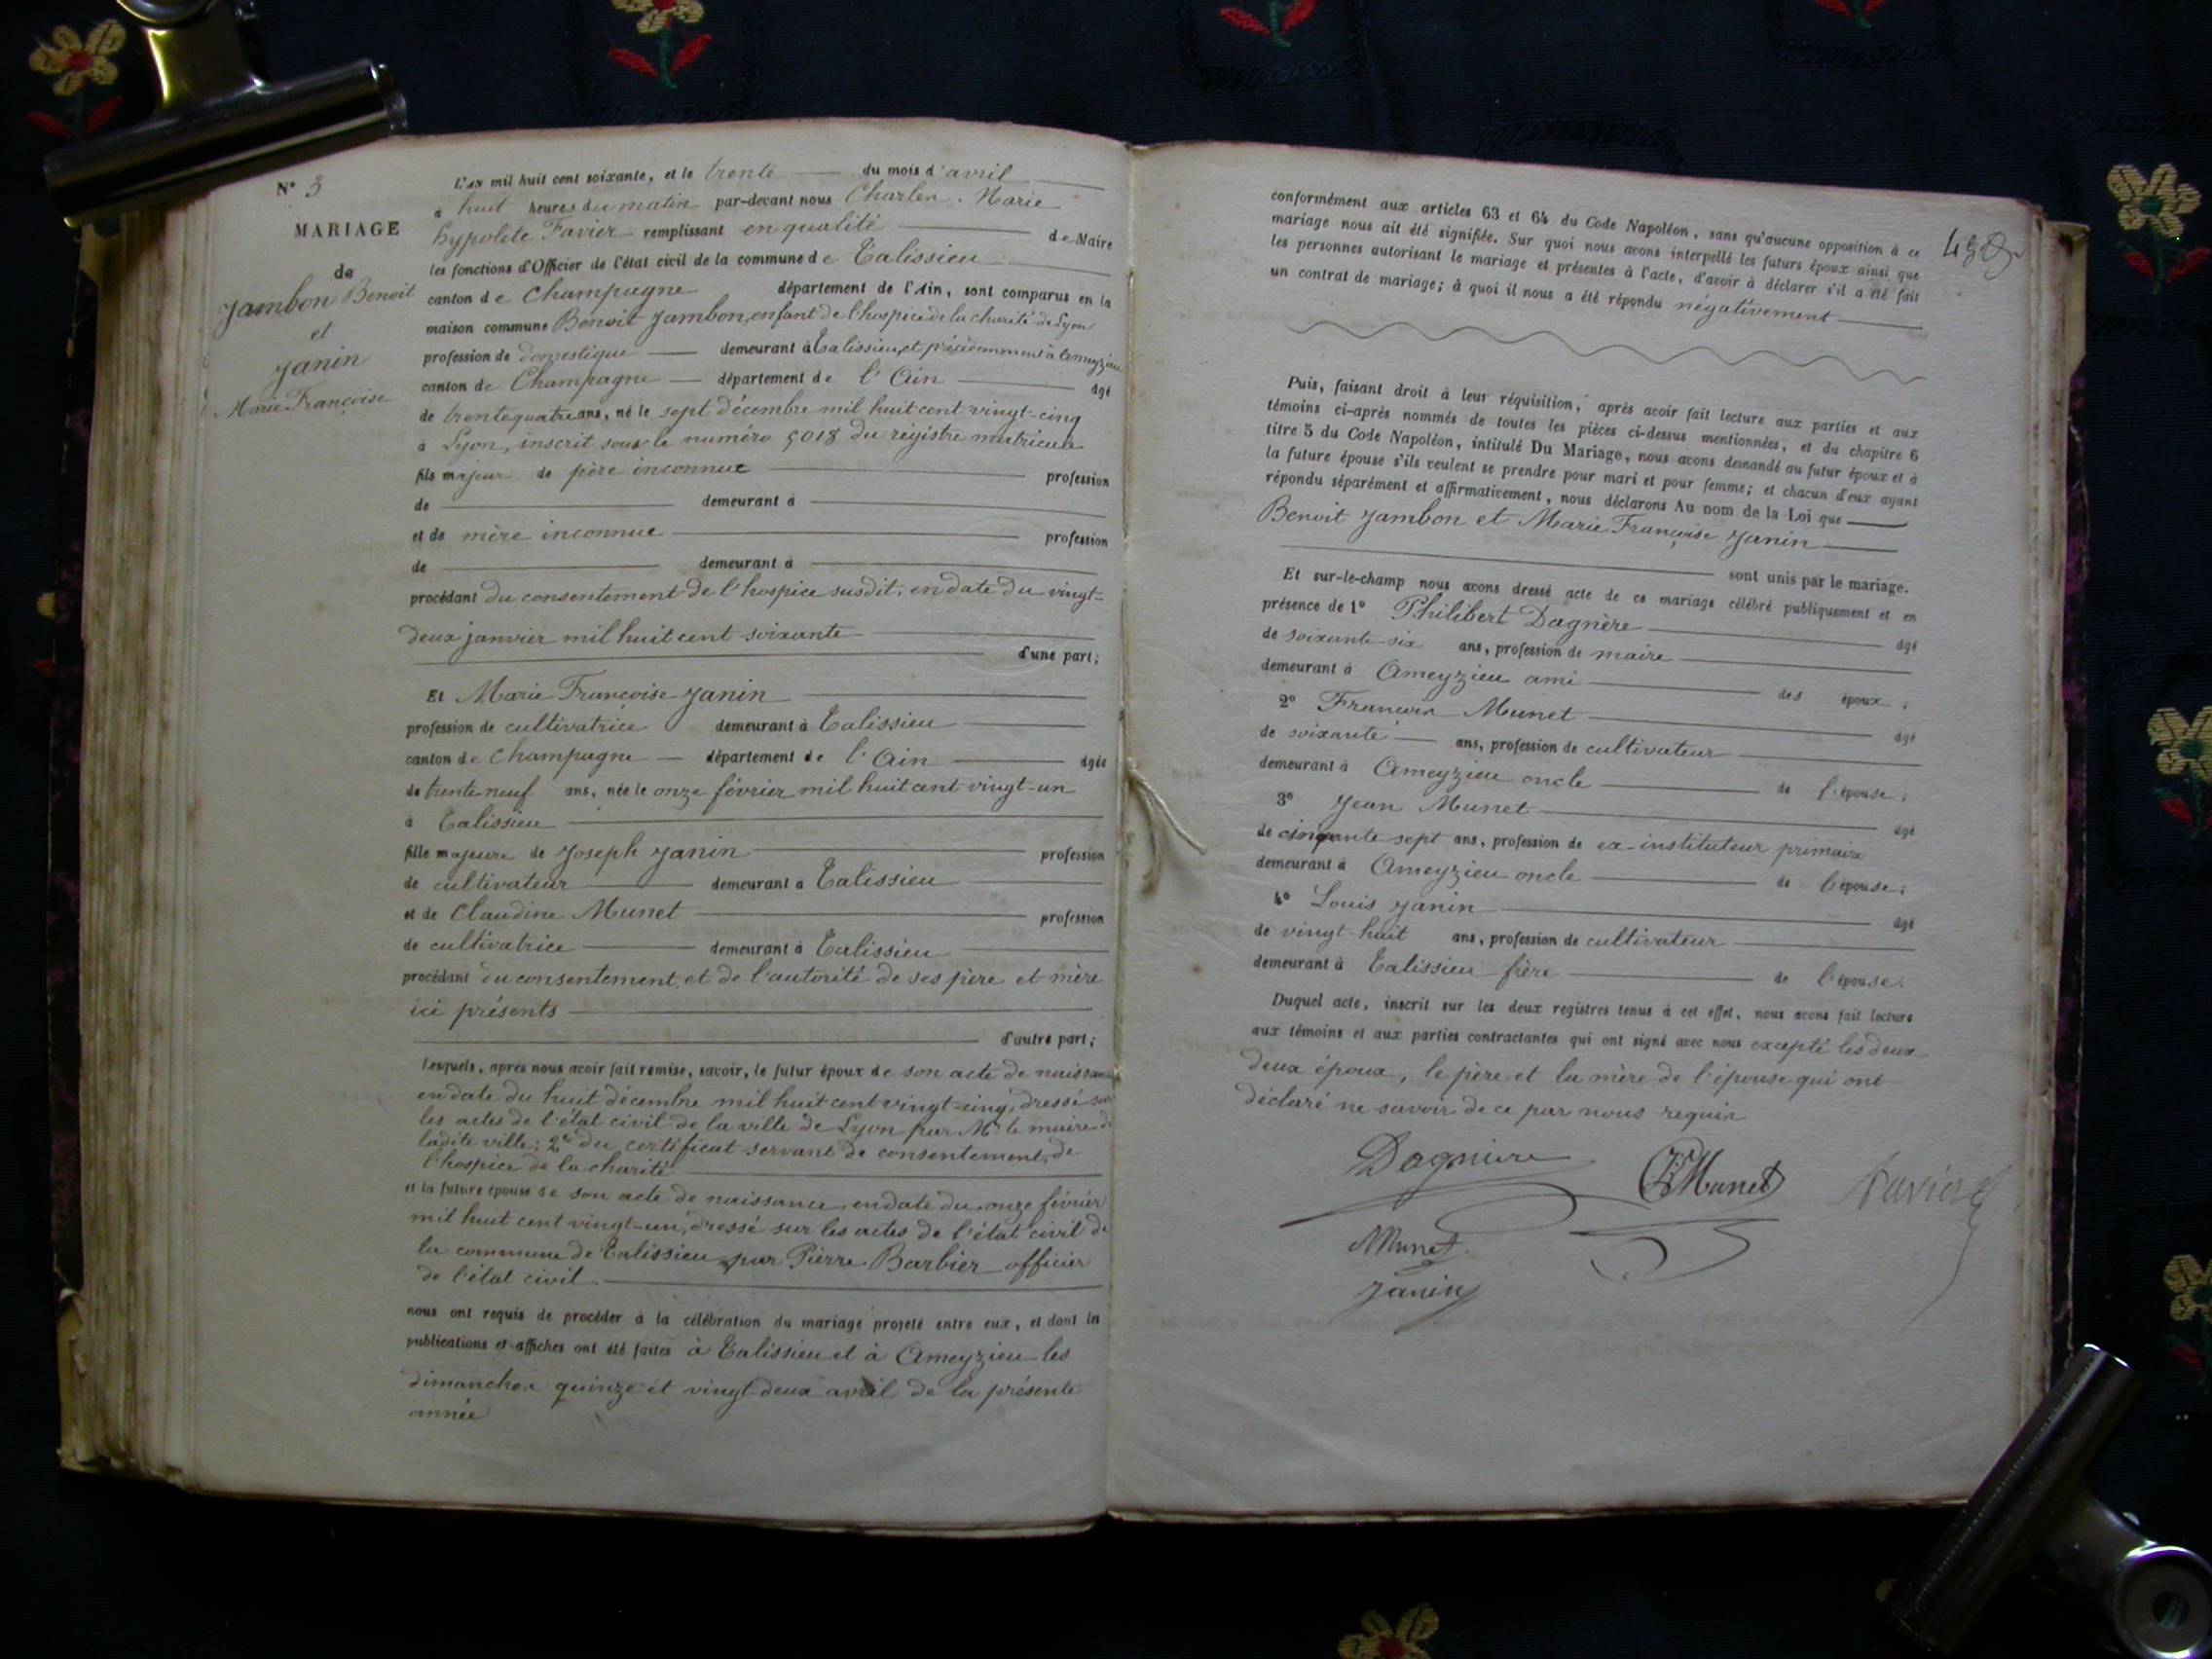 N° 3
MARIAGE
de
Jambon Benoit
et
Janin
Marie Françoise
L'AN mil huit cent soixante, et le trente du mois d'avril
à huit heures du matin par-devant nous Charles Marie
hypolite Favier remplissant en qualité de Maire
les fonctions d'Officier de l'état civil de la commune de Talissieu
canton de Champagne département de l'Ain, sont comparus en la
maison commune Benoit Jambon, enfant de l'hospice de la charité de Lyon
profession de domestique demeurant à Talissieu, et précédemment à Ameyzieu
canton de Champagne département de l'Ain âgé
de trente quatre ans, né le sept décembre mil huit cent vingt-cinq
à Lyon, inscrit sous le numéro 5018 du régistre matricule
fils majeur de père inconnue profession
de demeurant à
et de mère inconnue profession
de demeurant à
procédant du consentement de l'hospice susdit, en date du vingt-
deux janvier mil huit cent soixante
d'une part;
Et Marie Françoise Janin
profession de cultivatrice demeurant à Talissieu
canton de Champagne département de l'Ain âgée
de trente neuf ans, née le onze février mil huit cent vingt-un
à Talissieu
fille majeure de Joseph Janin profession
de cultivateur demeurant à Talissieu
et de Claudine Munet profession
de cultivatrice demeurant à Talissieu
procédant du consentement, et de l'autorité de ses père et mère
ici présents
d'autre part;
Lesquels, après nous avoir fait remise, savoir, le futur époux de son acte de naissance
en date du huit décembre mil huit cent vingt-cinq, dressé sur
les actes de l'état civil de la ville de Lyon par Mr le maire de
ladite ville; 2° du certificat servant de consentement, de
l'hospice de la charité
et la future épouse de son acte de naissance, en date du onze février
mil huit cent vingt-un, dressé sur les actes de l'état civil de
la commune de Talissieu par Pierre Barbier officier
de l'état civil
nous ont requis de procéder à la célébration du mariage projeté entre eux, et dont les
publications et affiches ont été faites à Talissieu et à Ameyzieu les
dimanches quinze et vingt deux avril de la présente
année
conformément aux articles 63 et 64 du Code Napoléon, sans qu'aucune opposition à ce
mariage nous ait été signifiée. Sur quoi nous avons interpellé les futurs époux ainsi que
les personnes autorisant le mariage et présentes à l'acte, d'avoir à déclarer s'il a été fait
un contrat de mariage; à quoi il nous a été répondu négativement
Puis, faisant droit à leur réquisition, après avoir fait lecture aux parties et aux
témoins ci-après nommés de toutes les pièces ci-dessus mentionnées, et du chapitre 6
titre 5 du Code Napoléon, intitulé Du Mariage, nous avons demandé au futur époux et à
la future épouse s'ils veulent se prendre pour mari et pour femme; et chacun d'eux ayant
répondu séparément et affirmativement, nous déclarons Au nom de la Loi que
Benoit Jambon et Marie Françoise Janin
sont unis par le mariage.
Et sur-le-champ nous avons dressé acte de ce mariage célébré publiquement et en
présence de 1° Philibert Dagnère âgé
de soixante six ans, profession de maire
demeurant à Ameyzieu ami des époux;
2° Francois Munet âgé
de soixante ans, profession de cultivateur
demeurant à Ameyzieu oncle de l'épouse;
3° Jean Munet âgé
de cinquante sept ans, profession de ex-instituteur primaire
demeurant à Ameyzieu oncle de l'épouse;
4° Louis Janin âgé
de vingt huit ans, profession de cultivateur
demeurant à Talissieu frère de l'épouse.
Duquel acte, inscrit sur les deux registres tenus à cet effet, nous avons fait lecture
aux témoins et aux parties contractantes qui ont signé avec nous excepté les deux
deux époux, le père et la mère de l'épouse qui ont
déclaré ne savoir de ce par nous requis
Dagnière Munet Favier
Munet
Janin